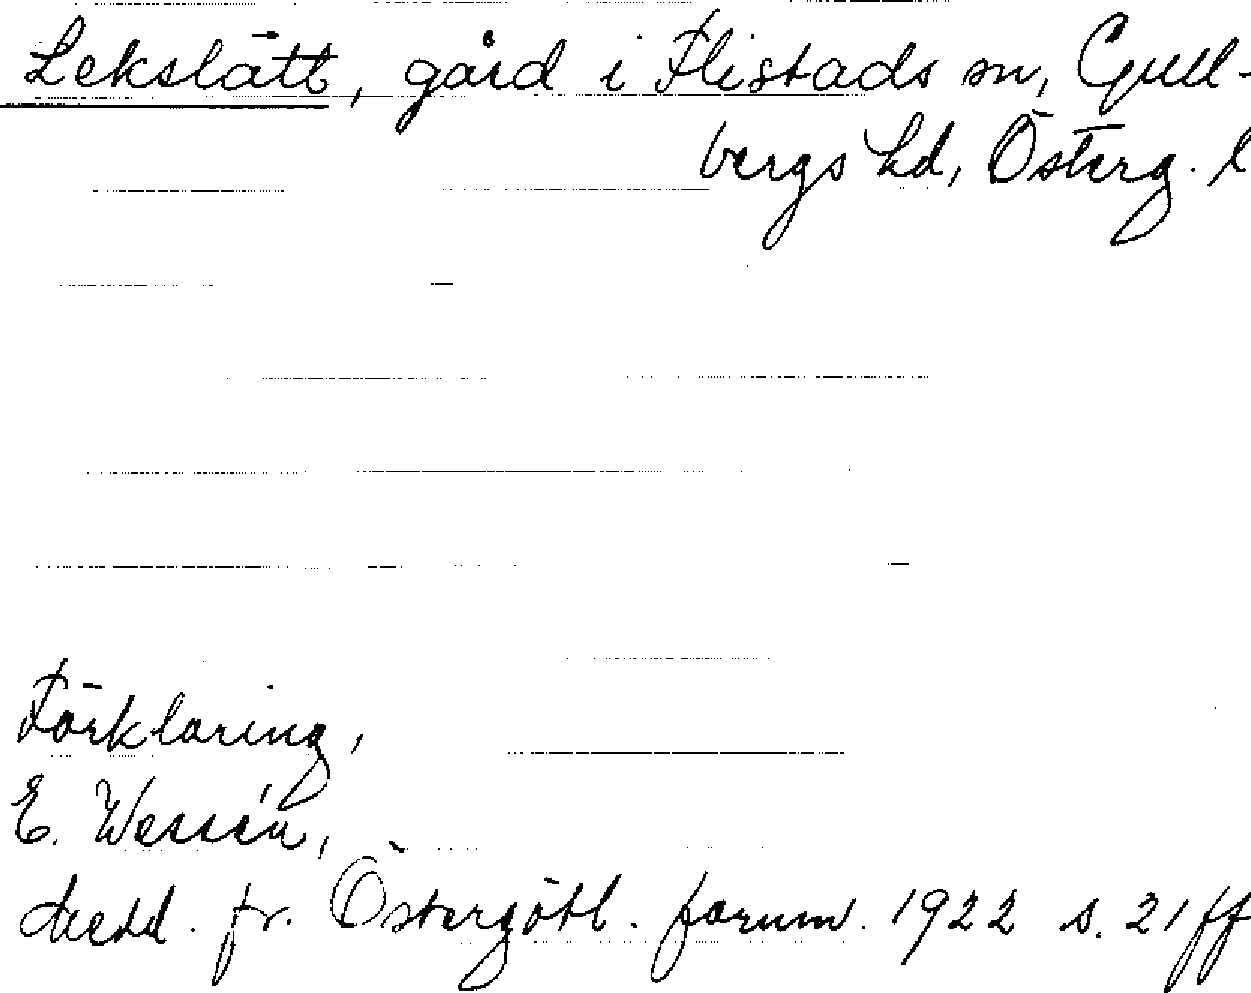 Lekslätt, gård i Flistads sn, Gull-
bergs hd, Österg. l
Förklaring,
E. Wessén,
Medd. fr. Östergötl. fornm. 1922 s. 21 ff